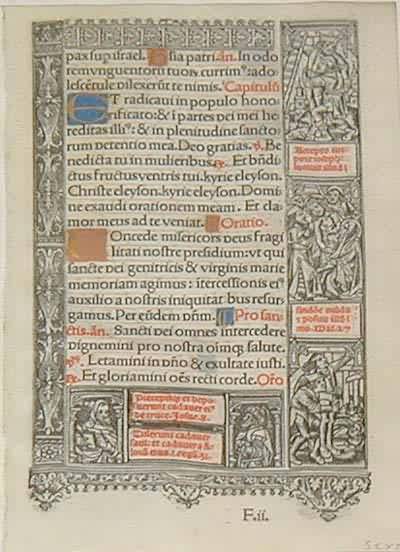 pax sup israel. Gľia patri. añ. In odo
rem vnguentorū tuoꝝ currim⁹: ado-
lescētule dilexerūt te nimis. Capitulū
ET radicaui in populo hono
rificato: & ī partes dei mei he
reditas illi⁹: & in plenitudine sancto
rum detentio mea. Deo gratias. ℣. Be
nedicta tu in mulieribus. ℟. Et bñdi
ctus fructus ventris tui. kyrie eleyson.
Christe eleyson. kyrie eleyson. Domi
ne exaudi orationem meam. Et cla
mor meus ad te veniat. Oratio.
Concede misericors deus fragi
litati nostre presidium: vt qui
sancte dei genitricis & virginis marie
memoriam agimus: ītercessionis ei⁹
auxilio a nostris iniquitat bus resur-
gamus. Per eūdem dñm. Pro san-
ctis. añ. Sancti dei omnes intercedere
dignemini pro nostra oīmqꝫ salute.
℣. Letamini in dño & exultate iusti.
℟. Et gloriamini oēs recti corde. Orō
Preceptūqꝫ et depo
suerunt cadauer ei⁹
de cruce. Josue. 8.
F.ii.